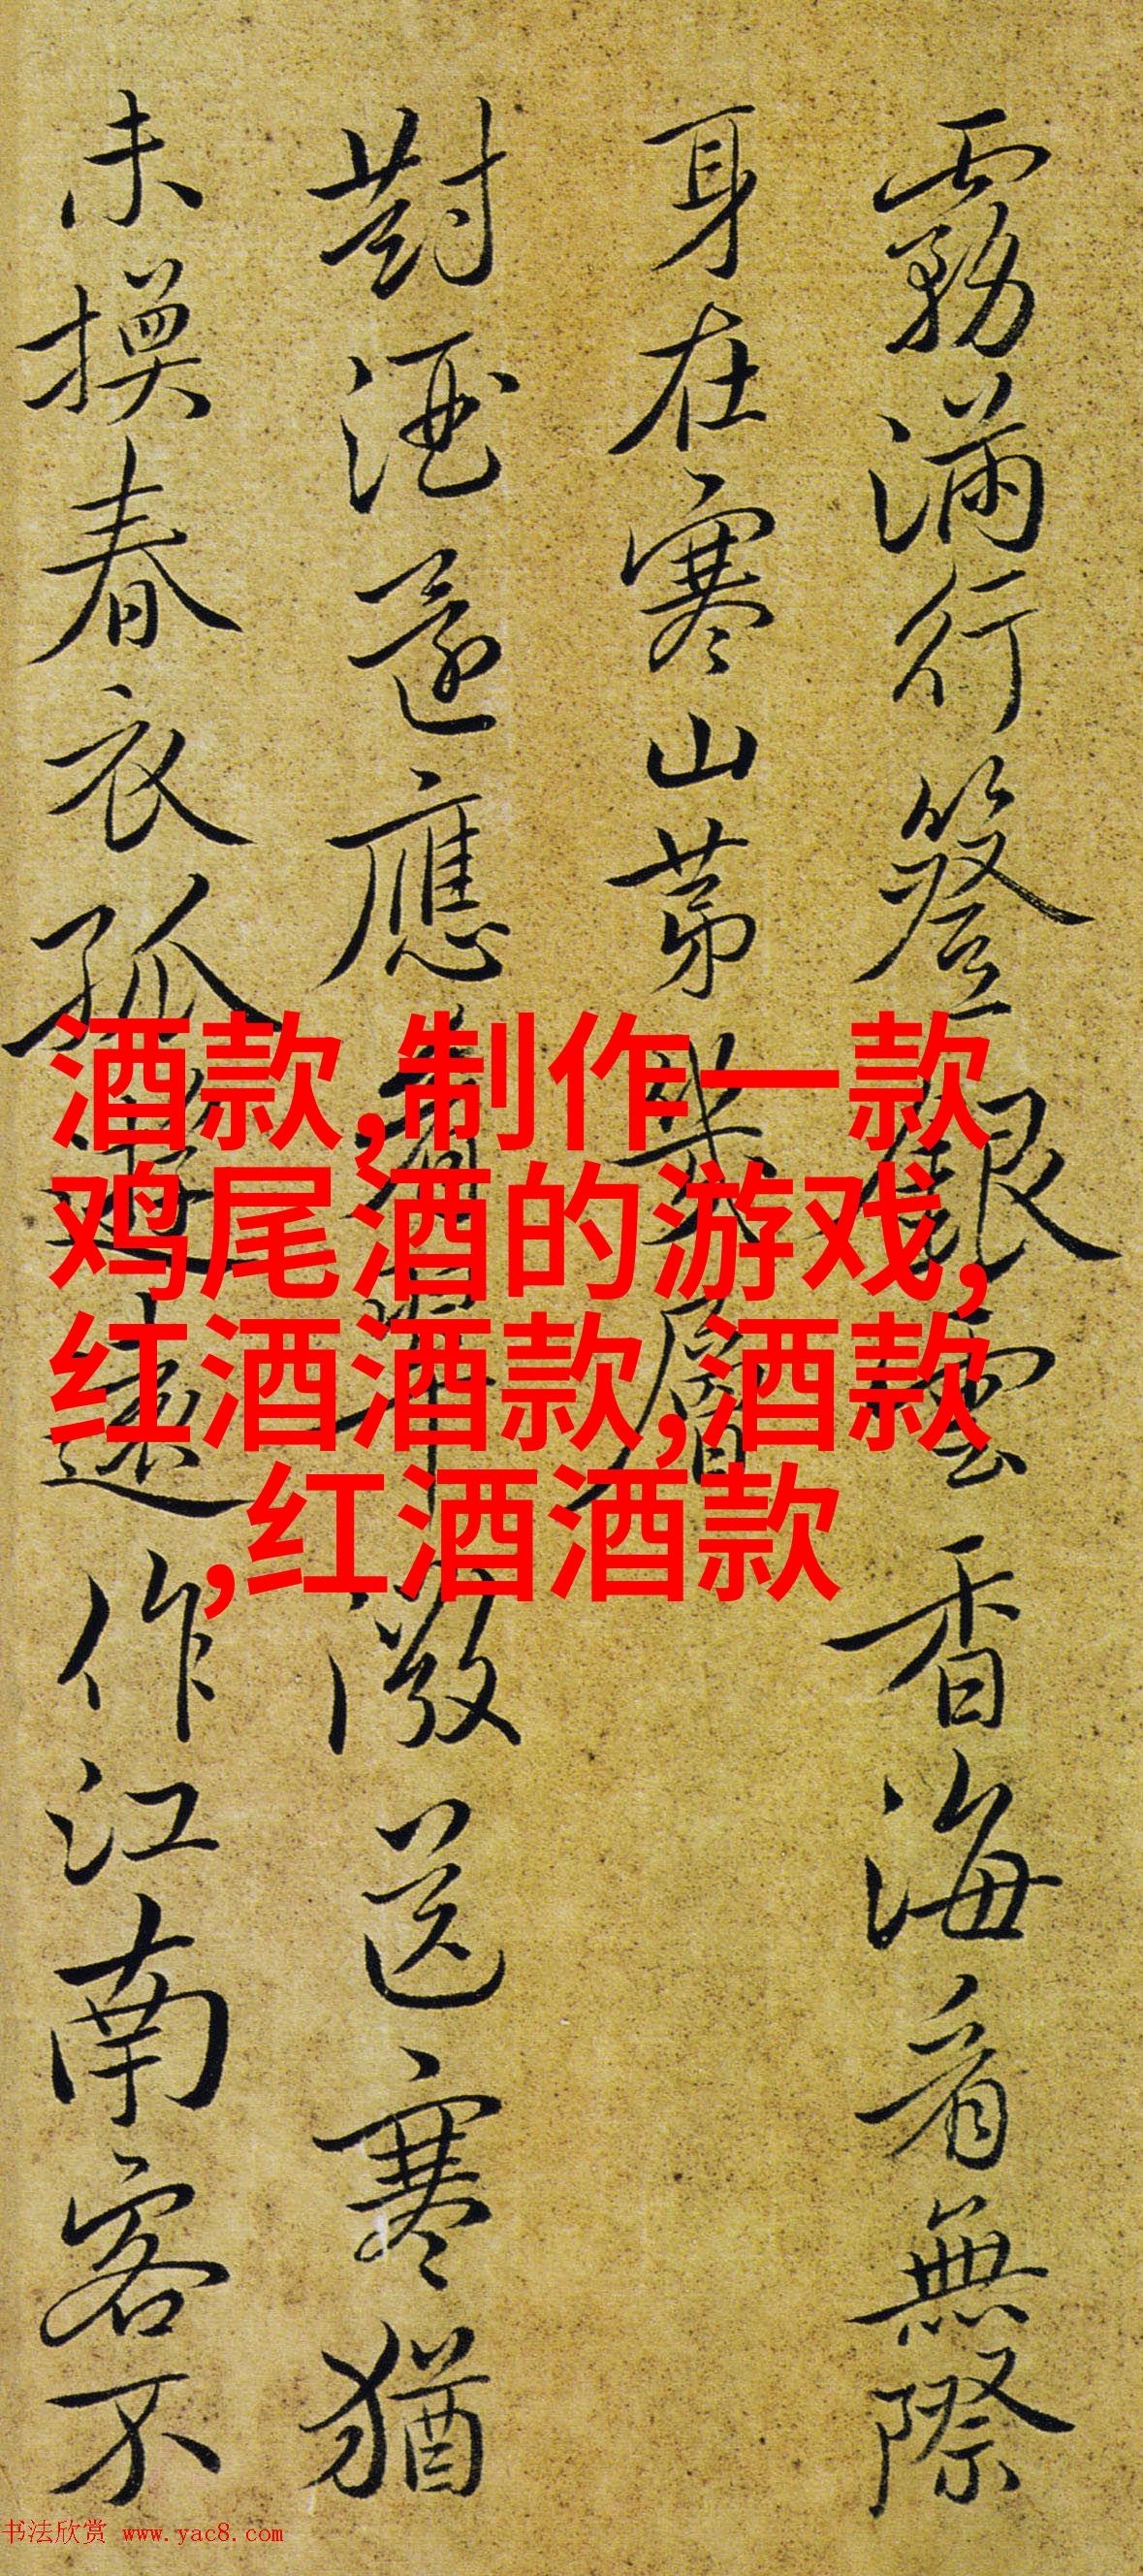 霧滿行簦銀雲香海看無際
身在寒山苐幾層
對酒還應看激送寒猶
未換春衣孤遊遠作江南客不
酒款,制作一款
鸡尾酒的游戏,
红酒酒款,酒款
,红酒酒款
书法欣赏 www.yac8.com